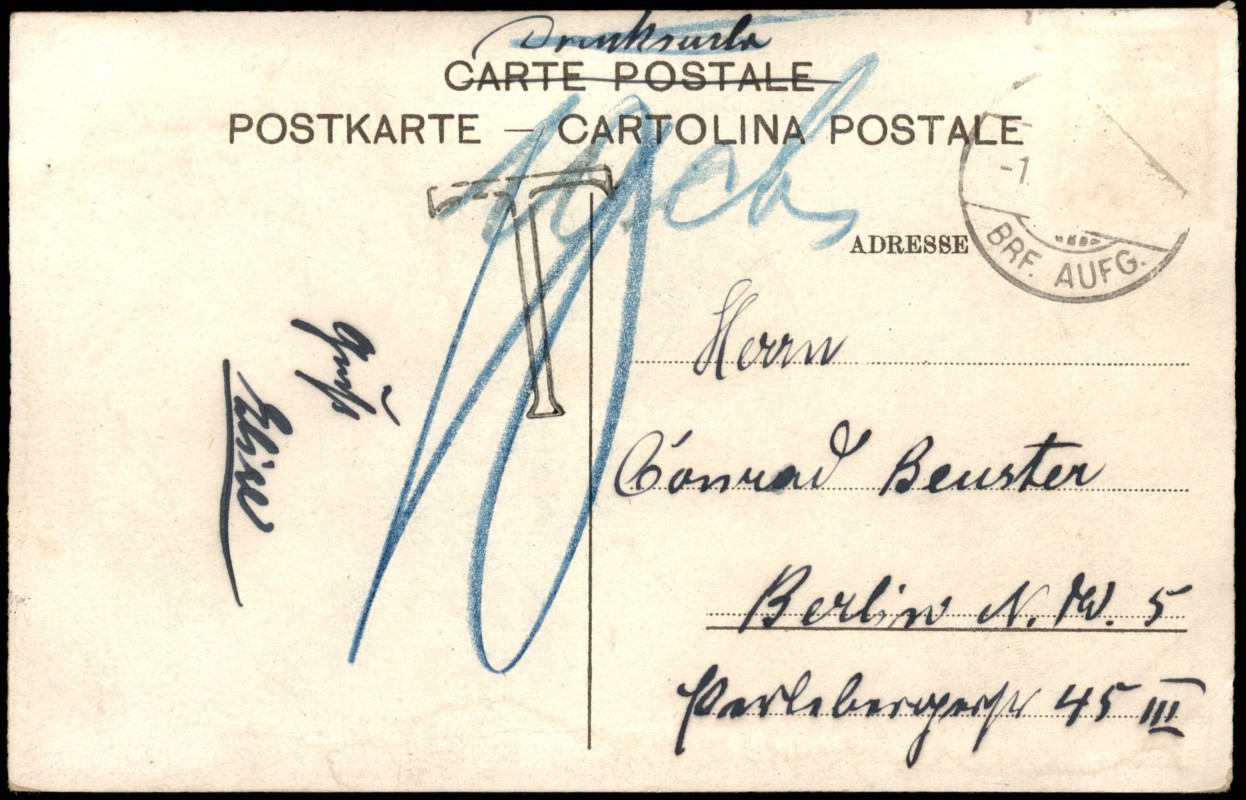 Drucksache
CARTE POSTALE
POSTKARTE – CARTOLINA POSTALE
T
10
ADRESSE
-1.
BRF. AUFG.
Herrn
Conrad Beuster
Berlin N. W. 5
Perlebergerstr 45 III
Gruß
Elise